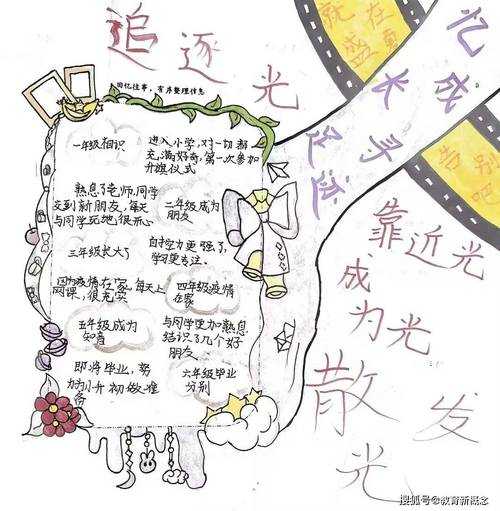 追逐光
回忆往事，有序整理信息
一年级相识
进入小学，对一切都
充满好奇，第一次参加
升旗仪式
熟悉了老师，同学
交到新朋友，每天
与同学玩地，很开心
二年级成为
朋友
三年级长大了
自控力更强了，
学习更专注。
因为疫情在家，每天上
网课，很充实
四年级疫情
在家
五年级成为
知音
与同学更加熟悉
结识了几个好
朋友
即将毕业，努
力为小升初做准
备
六年级毕业
分别
就在
盛夏
告别
吧
忆成
长寻
足迹
靠近光
成为光
散发
光
搜狐号@教育新概念